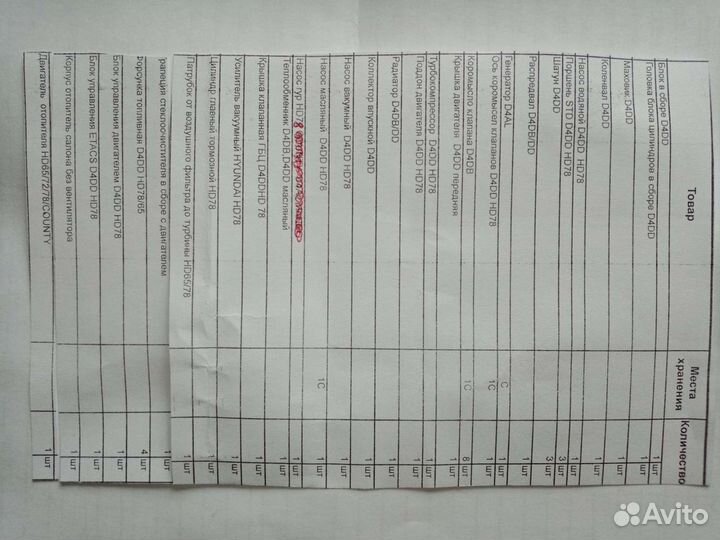 Товар Места хранения Количество
Блок в сборе D4DD 1 шт
Головка блока цилиндров в сборе D4DD 1 шт
Маховик D4DD 1 шт
Коленвал D4DD 1 шт
Насос водяной D4DD HD78 1 шт
Поршень STD D4DD HD78 3 шт
Шатун D4DD 3 шт
Распредвал D4DB/DD 1 шт
Генератор D4AL С 1 шт
Ось коромысел клапанов D4DD HD78 1С 1 шт
Коромысло клапана D4DB 1С 8 шт
Крышка двигателя D4DD передняя 1 шт
Турбокомпрессор D4DD HD78 1 шт
Поддон двигателя D4DD HD78 1 шт
Радиатор D4DB/DD 1 шт
Коллектор впускной D4DD 1 шт
Насос вакумный D4DD HD78 1 шт
Насос масляный D4DD HD78 1С 1 шт
Насос гур HD78 1 шт
Теплообменник D4DB,D4DD масляный 1 шт
Крышка клапанная ГБЦ D4DDHD 78 1 шт
Усилитель вакуумный HYUNDAI HD78 1 шт
Цилиндр главный тормозной HD78 1 шт
Патрубок от воздушного фильтра до турбины HD65/78 1 шт
рапеция стеклоочистителя в сборе с двигателем 1 шт
Форсунка топливная D4DD HD78/65 4 шт
Блок управления двигателем D4DD HD78 1 шт
Блок управления ETACS D4DD HD78 1 шт
Корпус отопитель салона без вентилятора 1 шт
Двигатель отопителя HD65/72/78/COUNTY 1 шт
Avito